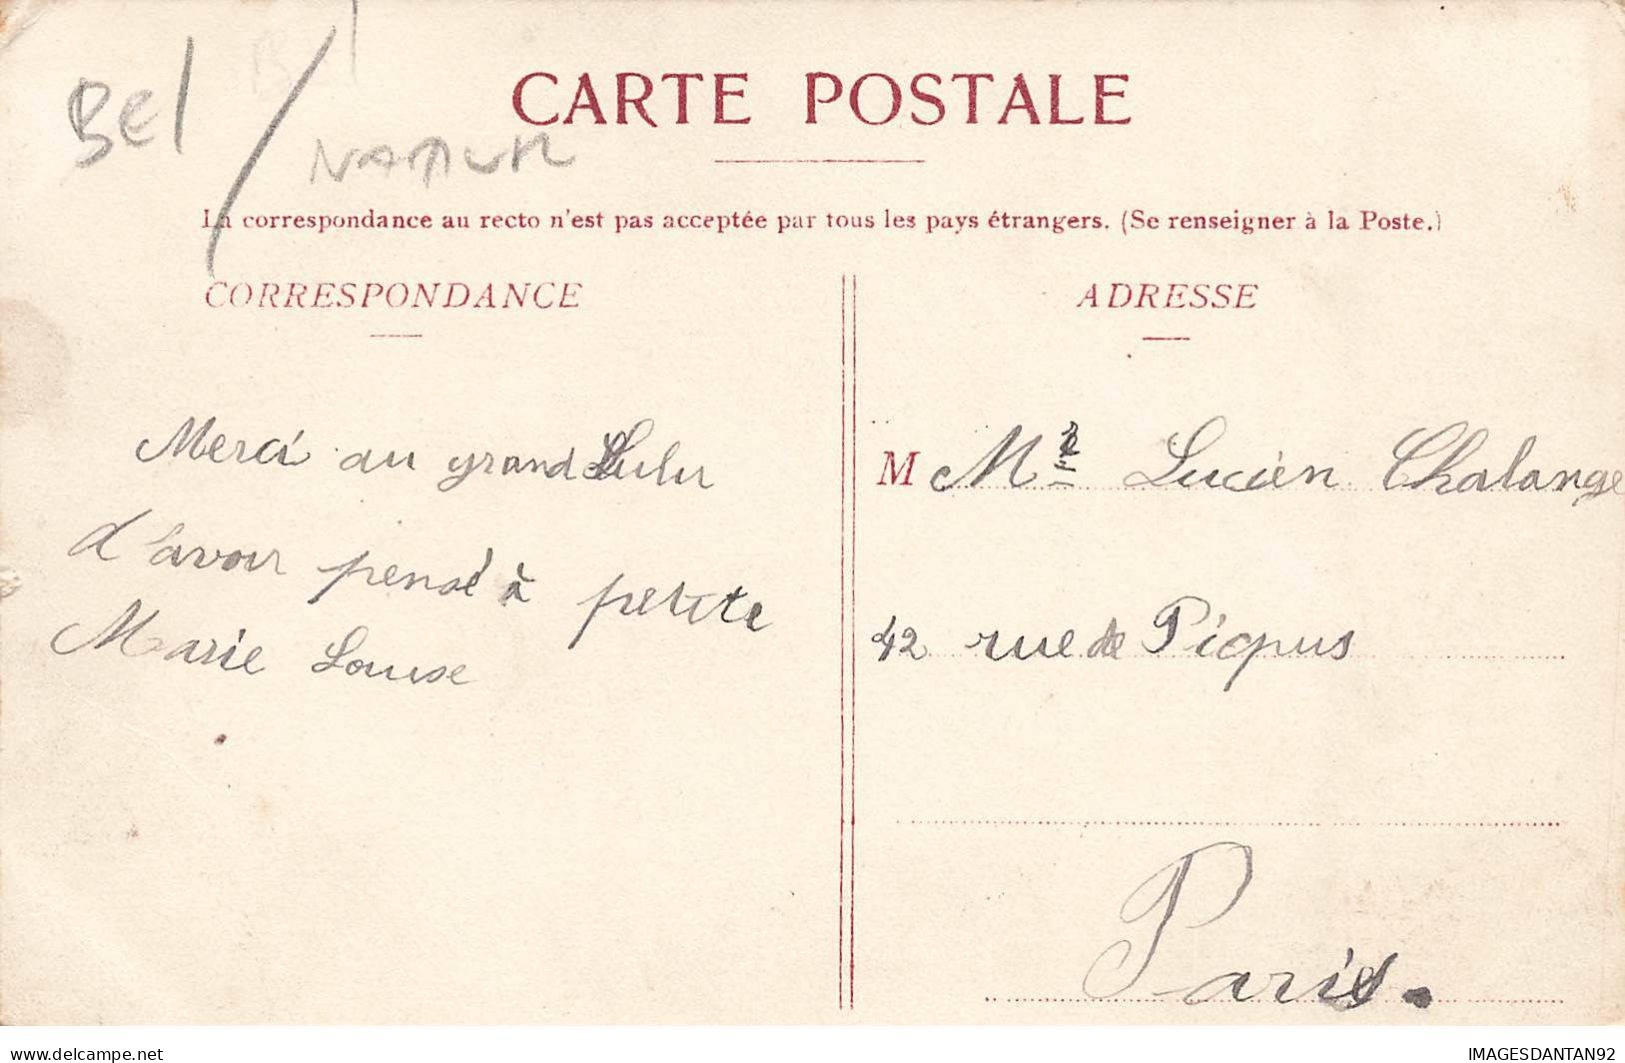 Bel / NAMUR
CARTE POSTALE
La correspondance au recto n'est pas acceptée par tous les pays étrangers. (Se renseigner à la Poste.)
CORRESPONDANCE
Merci au grand Lulu
d'avoir pensé à petite
Marie Louise
ADRESSE
M Mr Lucien Chalange
42 rue de Picpus
Paris.
www.delcampe.net
IMAGESDANTAN92